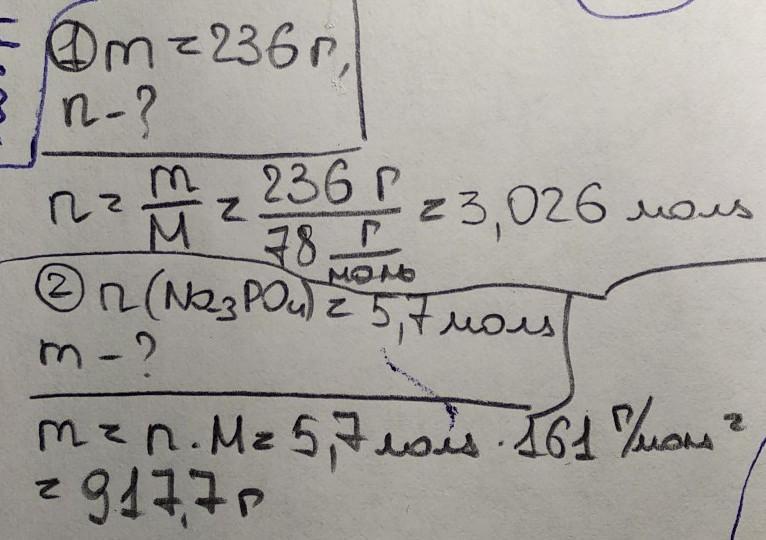 ① m = 236 г,
n - ?
n = m/M = 236 г / 78 г/моль = 3,026 моль
② n (Na₃PO₄) = 5,7 моль
m - ?
m = n · M = 5,7 моль · 161 г/моль =
= 917,7 г